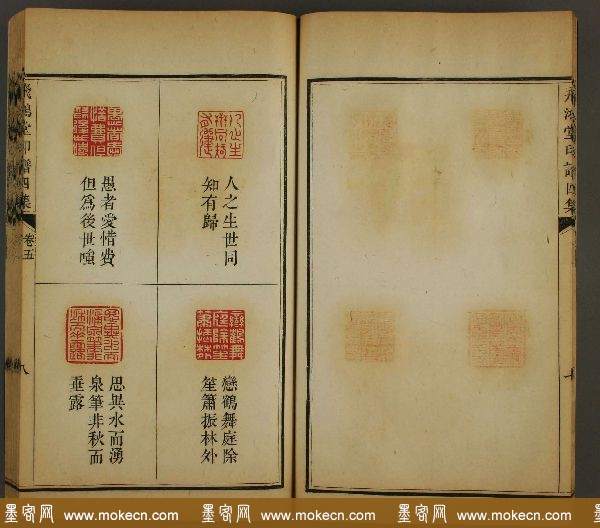 飛鴻堂印譜四集
人之生世同
知有歸
愚者愛惜費
但爲後世嗤
鶴舞庭除
笙簫振林外
思異水而湧
泉筆非秋而
垂露
飛鴻堂印譜四集
卷五
八
墨客网 www.mokecn.com 墨客网 www.mokecn.com 墨客网 www.mokecn.com 墨客网 www.mokecn.com